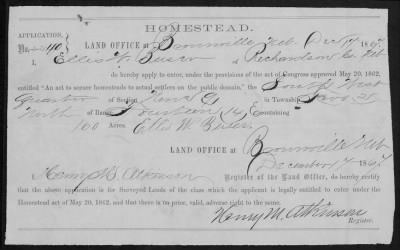 HOMESTEAD.
APPLICATION,
No. 40 LAND OFFICE at Brownville Neb. Dec 14 1867
I, Ellis W. of Richardson Co Neb
do hereby apply to enter, under the provisions of the act of Congress approved May 20, 1862,
entitled "An act to secure homesteads to actual settlers on the public domain," the South West
Quarter of Section in Township Two 2
North of Range Fourteen (14) E containing
160 Acres. Ellis W.
LAND OFFICE at Brownville Neb
December 14 1867
I, Henry M. Atkinson Register of the Land Office, do hereby certify
that the above application is for Surveyed Lands of the class which the applicant is legally entitled to enter under the
Homestead act of May 20, 1862, and that there is no prior, valid, adverse right to the same.
Henry M. Atkinson
Register.